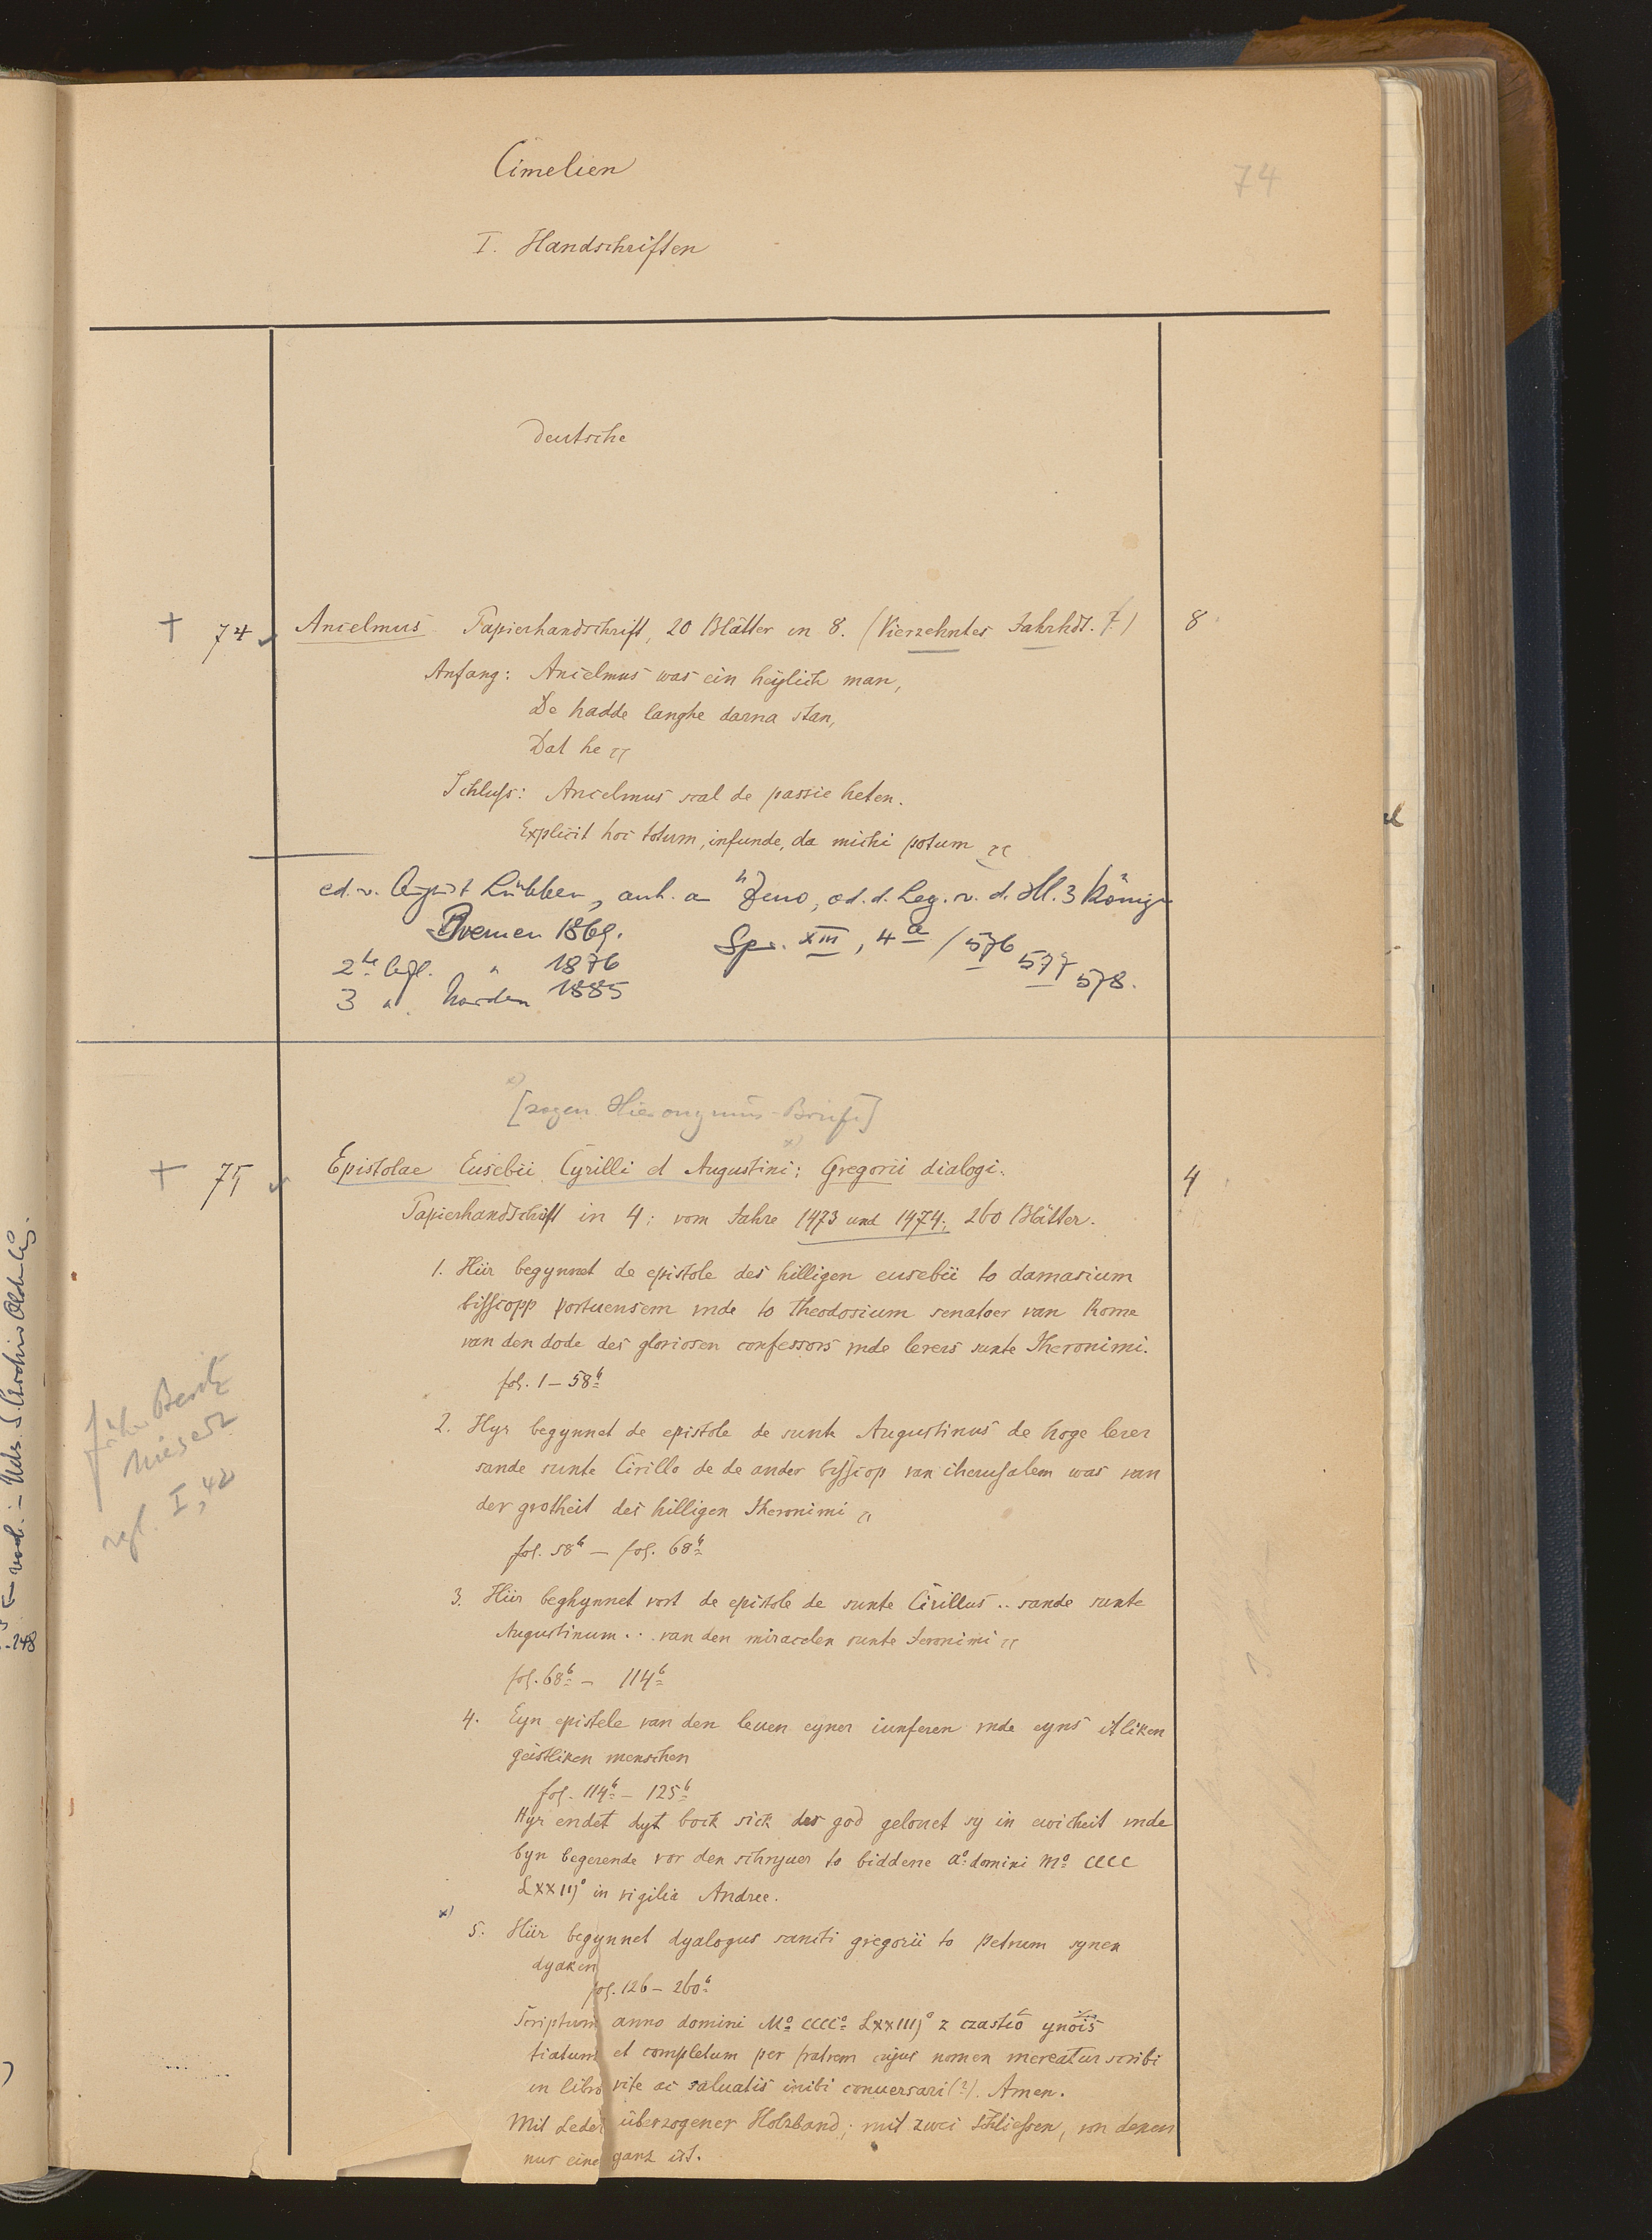 Cimelien
74
I. Handschriften
Deutsche
† 74 Ancelmus Papierhandschrift, 20 Blätter in 8. (Vierzehntes Jahrhdt. ?) 8
Anfang: Ancelmus was ein heylich man,
De hadde langhe darna stan,
Dat he
Schluſs: Ancelmus scal de passie heten.
Explicit hoc totum, infunde, da michi potum
ed. v. August Lübben, anh. a Zeno, od. d. Leg. v. d. Hl. 3 Könige
Bremen 1869.
Spr. XIII, 4 a / 576 577 578.
2te Aufl. " 1876
3 " Norden 1885
x)
[sogen. Hieronymus-Briefe]
x)
† 75 Epistolae Eusebii Cyrilli et Augustini; Gregorii dialogi. 4
Papierhandschrift in 4; vom Jahre 1473 und 1474; 260 Blätter.
1. Hiir begynnet de epistole des hilligen eusebii to damasium
biſſcopp portuensem vnde to theodosium senatoer van Rome
van den dode des gloriosen confessors vnde lerers sunte Iheronimi.
fol. 1 – 58b
2. Hyr begynnet de epistole de sunte Augustinus de hoge lerer
sande sunte Cirillo de de ander byſſcop van iherusalem was van
der grotheit des hilligen Iheronimi
fol. 58b – fol. 68b
3. Hiir beghynnet vort de epistole de sunte Cirillus .. sande sunte
Augustinum ... van den miraculen sunte Jeronimi
fol. 68b – 114b
4. Eyn epistele van den leuen eyner iunferen vnde eyns itliken
geistliken menschen
fol. 114b – 125b
Hyr endet dyt bock sick des god gelouet sy in ewicheit vnde
byn begerende vor den schryuer to biddene ao domini Mo CCCC
LXXIIJo in vigilia Andree.
x)
5. Hiir begynnet dyalogus sancti gregorii to petrum synen
dyaken
fol. 126 – 260b
Scriptum anno domini Mo CCCCo LXXIIIJo
tiatum et completum per fratrem cujus nomen mereatur scribi
in libro vite ac saluatis inibi conuersari(?). Amen.
Mit Leder überzogener Holzband; mit zwei Schlieſsen, von denen
nur eine ganz ist.
früher Besitz
Niesert
vgl. I, 42
248